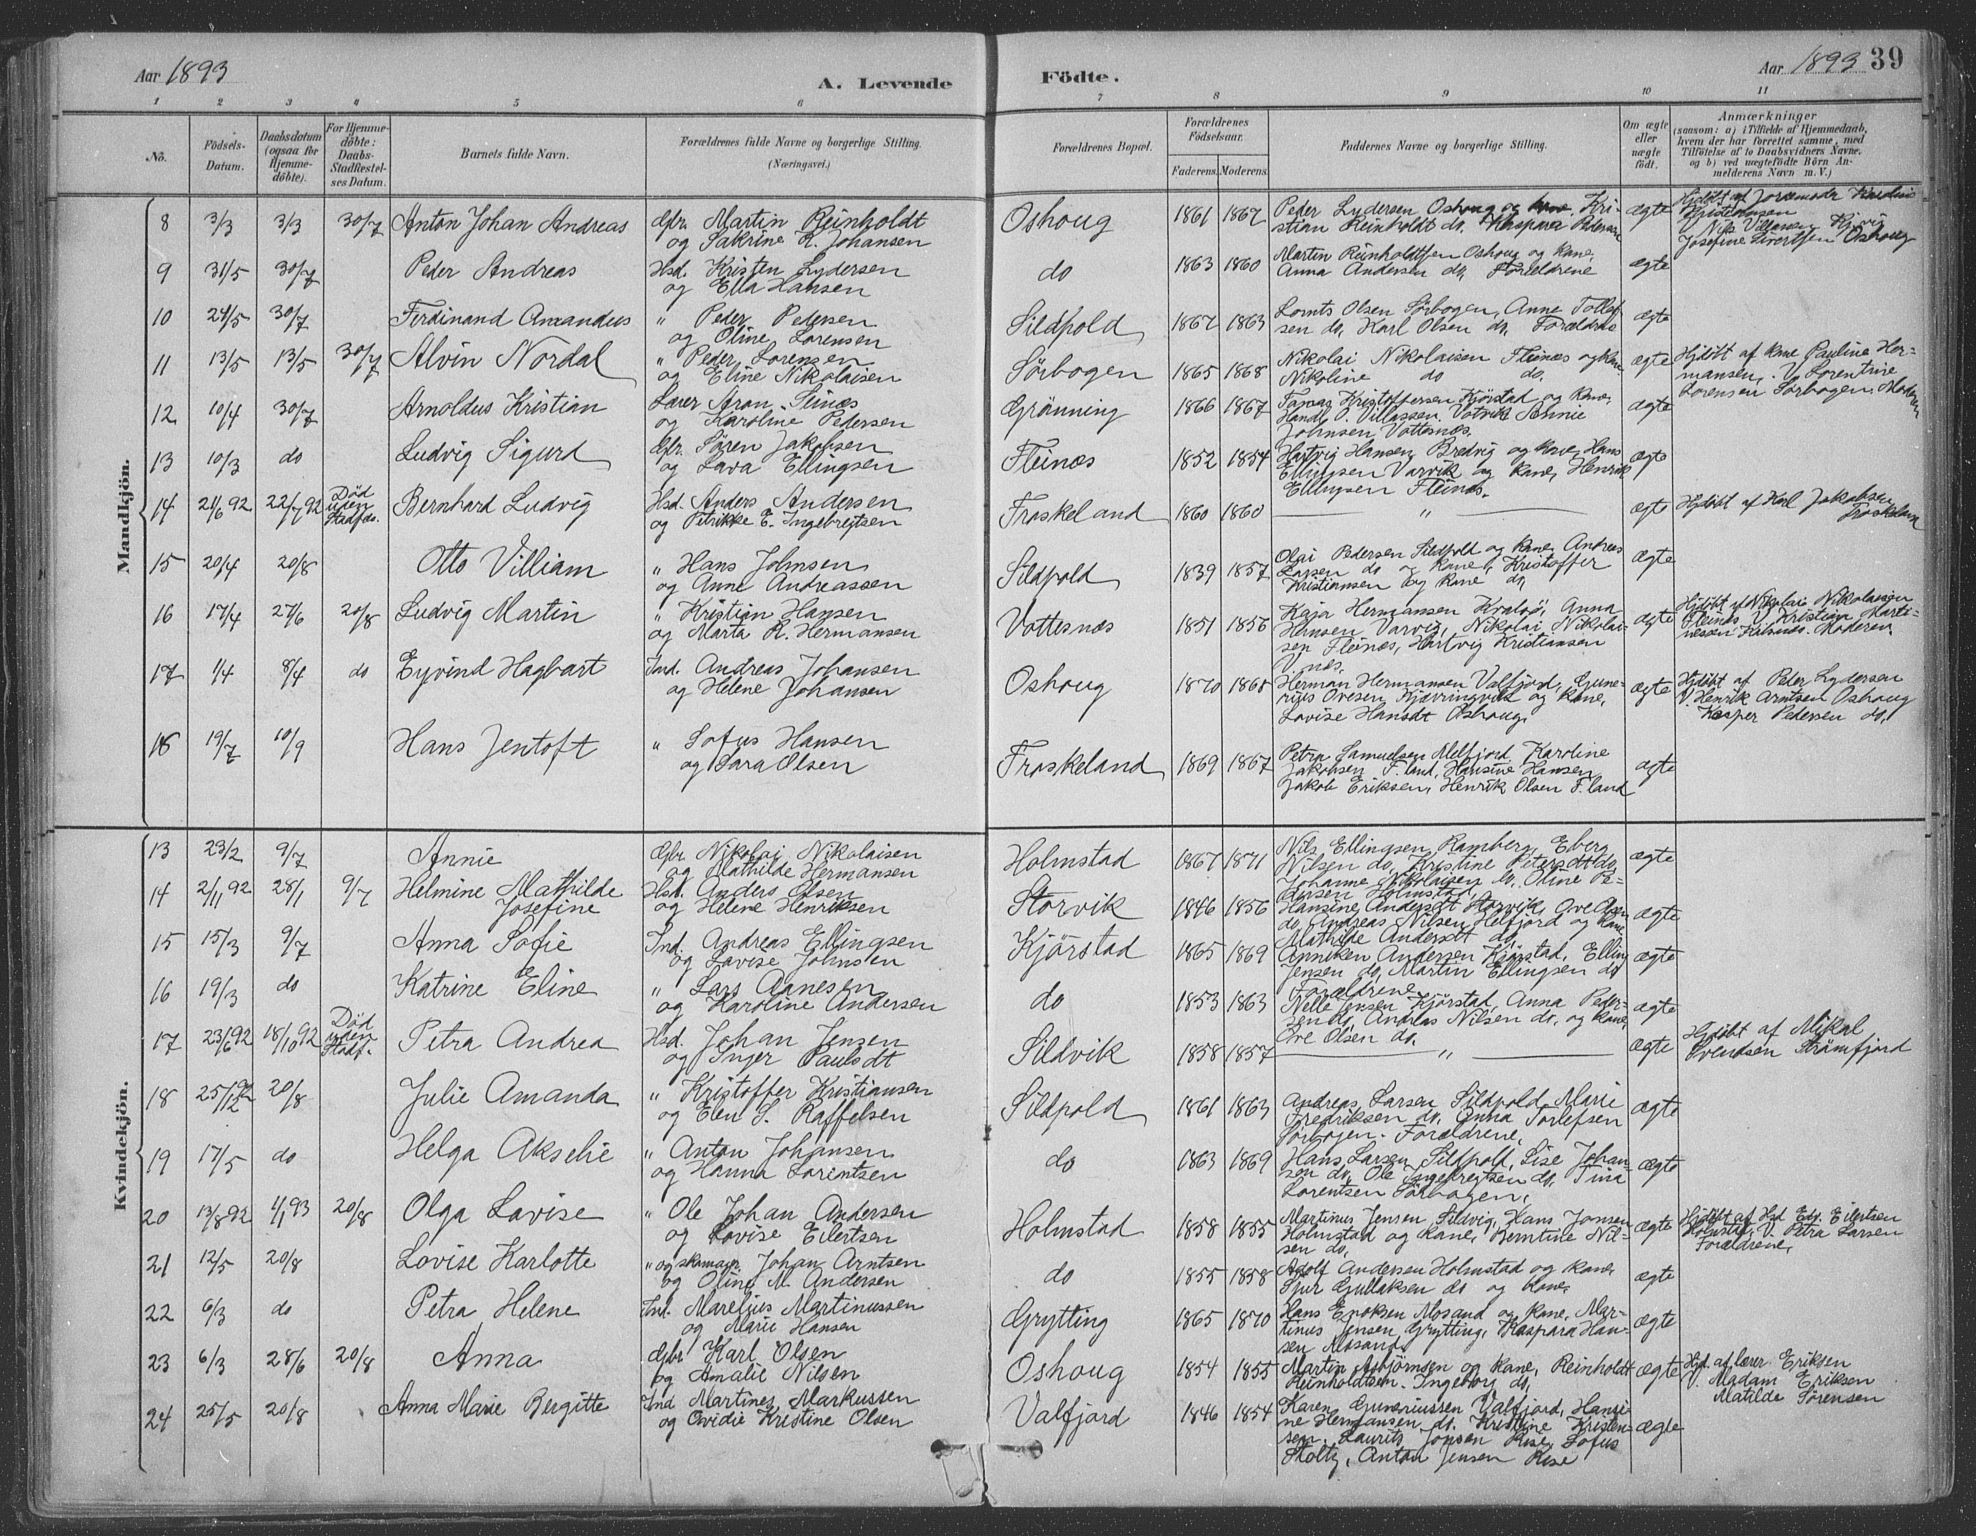 Aar 1893
A. Levende
Födte.
Aar 1893 39
1 2 3 4 5 6 7 8 9 10 11
No.
Födsels-Datum.
Daabsdatum (ogsaa for Hjemme-döbte).
For Hjemme-döbte: Daabs-Stadfæstel-ses Datum.
Barnets fulde Navn.
Forældrenes fulde Navne og borgerlige Stilling.
(Næringsvei.)
Forældrenes Bopæl.
Forældrenes Födselsaar.
Faderens. Moderens.
Faddernes Navne og borgerlige Stilling.
Om ægte eller uægte født.
Anmærkninger
(saasom: a) i Tilfælde af Hjemmedaab, hvem der har forrettet samme, med Tilföielse af to Daabsvidners Navne, og b) ved uægtefödte Börn An-melderens Navn m. V.)
Mandkjön.
8 3/3 3/3 30/7 Anton Johan Andreas Gbr. Martin Reinholdt
og Sakrine R. Johansen
Oshoug 1861 1867 Peder Lydersen Oshoug og Kone, Kri-
stian Reinholdt do. Kaspara Pedersen
ægte Hjdöbt af Jordemoder
Kristiansen
V. Nils Villassen Kjervig
Josefine Sivertsen Oshoug
9 31/5 30/7 Peder Andreas Hsd. Kristen Lydersen
og Ella Hansen
do 1863 1860 Martin Reinholdtsen Oshoug og Kane,
Anna Andersen do, Forældrene
ægte
10 24/5 30/7 Ferdinand Amandus " Peder Pedersen
og Oline Lorensen
Sildpold 1867 1863 Lornts Olsen Sörbogen, Anne Tollef-
sen do, Karl Olsen do, Forældrene
ægte
11 13/5 13/5 30/7 Alvin Nordal " Peder Lorensen
og Eline Nikolaisen
Sörbogen 1865 1868 Nikolai Nikolaisen Fleinæs og Kane
Nikoline do do.
ægte Hjdöbt af Kane Pauline Her-
mansen, V. Lorentine
Lorensen Sörbogen, Moderen
12 10/4 30/7 Arnoldus Kristian Lærer Aron Seinæs
og Karoline Pedersen
Grönning 1866 1867 Tomas Kristoffersen Kjörstad og Kane,
Handl. O. Villassen, Votvik Jennie
Johnsen Vottesnæs.
ægte
13 10/3 do Ludvig Sigurd Gbr. Sören Jakobsen
og Lava Ellingsen
Fleinæs 1852 1854 Hartvig Hansen, Bredvig og Kane, Hans
Ellingsen Varvik og Kane, Henrik
Ellingsen Fleinæs.
ægte
14 21/6 92 22/7 92 Död uden Stadfæs. Bernhard Ludvig Hsd. Anders Andersen
og Petrikke E. Ingebregtsen
Froskeland 1860 1860 " ægte Hjdöbt af Karl Jakobsen
Froskeland
15 20/4 20/8 Otto Villiam " Hans Johnsen
og Anne Andreassen
Sildpold 1839 1857 Olai Pedersen Sildpold og Kane, Andreas
Larsen do og Kane, Kristoffer
Kristiansen og Kane do,
ægte
16 17/4 27/6 20/8 Ludvig Martin " Kristian Hansen
og Marta R. Hermansen
Vottesnæs 1851 1856 Kaja Hermansen Kralsö, Anna
Hemsen Varvig, Nikolai Nikolai-
sen Fleinæs, Hartvig Kristiansen
V.næs.
ægte Hjdöbt af Nikolai Nikolaisen
Fleinæs V. Kristian Marti-
nessen Moderen
17 1/4 8/4 do Eyvind Hagbart Ind. Andreas Johansen
og Helene Johansen
Oshoug 1870 1868 Herman Hermansen Valfjord, Gune-
rius Ovesen, Kjærringvik og Kane,
Lovise Hansdt Oshoug,
ægte Hjdöbt af Peder Lydersen
V. Henrik Arntsen Oshoug
Kasper Pedersen do,
18 19/7 10/9 Hans Jentoft " Sofus Hansen
og Sara Olsen
Froskeland 1869 1867 Petra Samuelsen Melfjord, Karoline
Jakobsen F.land, Hansine Hansen
Jakob Eriksen, Henrik Olsen F.land
ægte
Kvindekjön.
13 23/2 9/7 Annie Gbr. Nikolai Nikolaisen
og Mathilde Hermansen
Holmstad 1867 1871 Nils Ellingsen Ramberg, Eberg
Nilsen do, Kristine Petersdt do,
Johanne Nikolaisen do. Oline Pe-
dersen Holmstad,
ægte
14 2/11 92 28/1 9/7 Helmine Mathilde
Josefine
Hsd. Anders Olsen
og Helene Henriksen
Storvik 1846 1856 Hansine Andersdt Storvik, Ove Olsen
do, Andreas Nilsen Melfjord og Kane
Mathilde Andersdt do,
ægte
15 15/3 9/7 Anna Sofie Ind. Andreas Ellingsen
og Lovise Johnsen
Kjörstad 1865 1869 Anniken Andersen Kjörstad, Elling
Jensen do, Martin Ellingsen do
Forældrene
ægte
16 19/3 do Katrine Eline " Lars Aanesen
og Karoline Andersen
do 1853 1863 Nelle Jensen Kjörstad, Anna Peder-
sen do, Andreas Nilsen do, og Kane,
Ove Olsen do.
ægte
17 23/6 92 18/10 92 Död uden Stadf. Petra Andrea Hsd. Johan Jensen
og Inger Paulsdt
Sildvik 1858 1857 " ægte Hjdöbt af Mikal
Svendsen Strömfjord
18 25/12 92 20/8 Julie Amanda " Kristoffer Kristiansen
og Elen S. Raffelsen
Sildpold 1861 1863 Andreas Larsen Sildpold, Marie
Fredriksen do, Anna Torlefsen
Sörbogen. Forældrene,
ægte
19 17/5 do Helga Akselie " Anton Johansen
og Hanna Lorintsen
do 1863 1869 Hans Larsen Sildpold, Lise Johan-
sen do, Ole Ingebregtsen do, Tina
Lorentsen Sörbogen,
ægte
20 13/8 92 4/1 93 20/8 Olga Lovise " Ole Johan Andersen
og Lovise Eilertsen
Holmstad 1858 1855 Martinus Jensen Sildvig, Hans Jonsen
Holmstad og Kane, Berntine Nil-
sen do,
ægte Hjdöbt af Hsd Edv. Eilertsen
Holmstad, V. Petra Larsen
Forældrene,
21 12/5 20/8 Lovise Karlotte " og skomagr. Johan Arntsen
og Oline M. Andersen
do 1855 1858 Adolf Andersen Holmstad og Kane,
Sjur Gullaksen do og Kane,
ægte
22 6/3 do Petra Helene Ind. Marelius Martinussen
og Marie Hansen
Grytting 1865 1870 Hans Enoksen Mosand og Kane, Mar-
tinus Jensen Grytting, Kaspara Han-
sen Mosand,
ægte
23 6/3 28/6 20/8 Anna Gbr Karl Olsen
og Amalie Nilsen
Oshoug 1854 1855 Martin Asbjörnsen og Kane, Reinholdt
Reinholdtsen. Ingeborg do,
ægte Hjd. af Lærer Eriksen
V. Madam Eriksen
Matilde Sörensen
24 25/5 20/8 Anna Marie Bergitte Ind Martines Markussen
og Ovidie Kristine Olsen
Valfjord 1846 1854 Karen Gunariussen Valfjord, Hansi-
ne Hermansen do. Kristine Kristen-
sen. Laurits Jonsen Rise, Sofus
Stoltz, Anton Jensen Rise
ægte